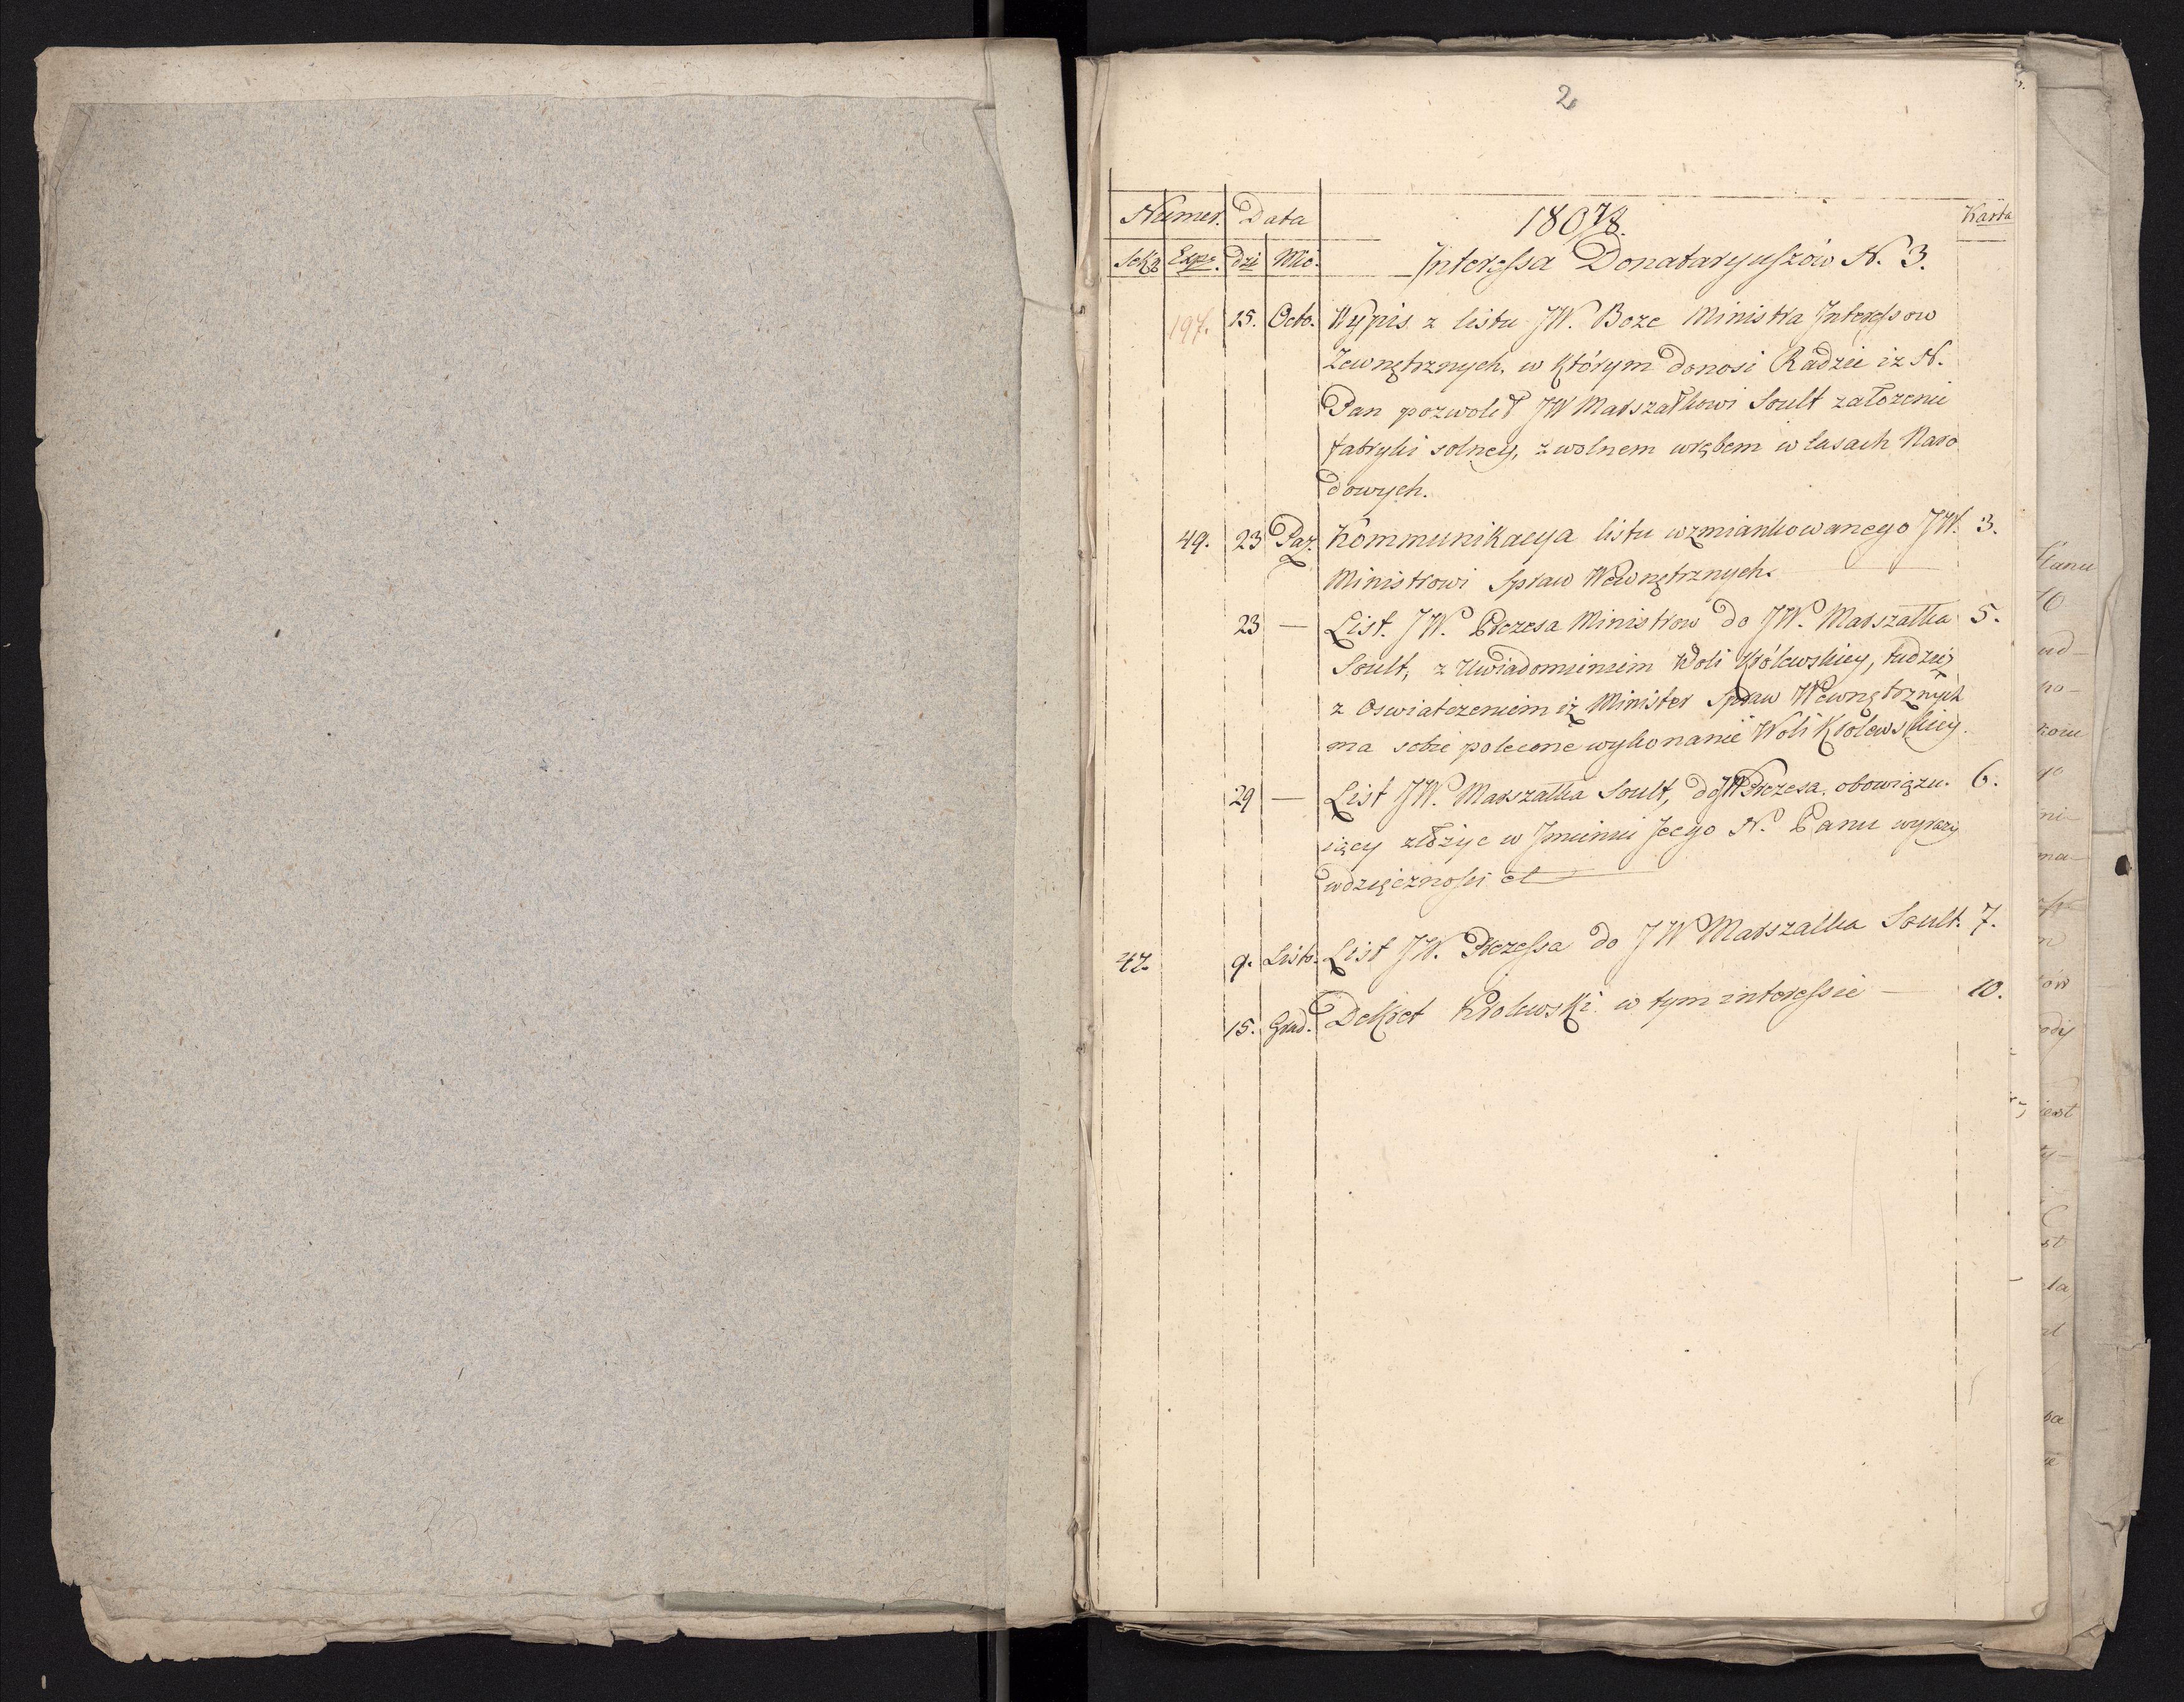 2
Numer. Data 1807/8. Karta
Sekr Expe. Dzi Mie. Interessa Donataryuszów N. 3.
197. 15. Octo. Wypis z listu JW. Boze Ministra Interessow
Zewnętrznych, w którym donosi Radzie iz N.
Pan pozwolił JW Marszałkowi Soult założenie
fabryki solney, z wolnem wrębem w lasach Naro
dowych.
49. 23 Paz. Kommunikacya listu wzmiankowanego JW. 3.
Ministrowi Spraw Wewnętrznych.
23 — List. JW. Prezesa Ministrow do JW. Marszałka 5.
Soult, z Uwiadomieniem Woli Królewskiey, tudzież
z Oswiatczeniem iż Minister Spraw Wewnętrznych
ma sobie polecone wykonanie Woli Krolewskiey.
29 — List JW. Marszałka Soult, do JW Prezesa. obowiązu. 6.
iący złożyc w Jmieniu Jego N. Panu wyrazy
wdzięcznosci et
42. 9. Listo. List JW. Prezessa do JW Marszałka Soult. 7.
15. Grud. Dekret Krolewski w tym interessie — 10.